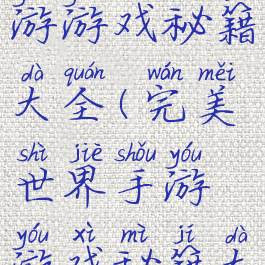 游游戏秘籍
dà quán wán měi
大全(完美
shì jiè shǒu yóu
世界手游
yóu xì mì jí dà
游戏秘籍大